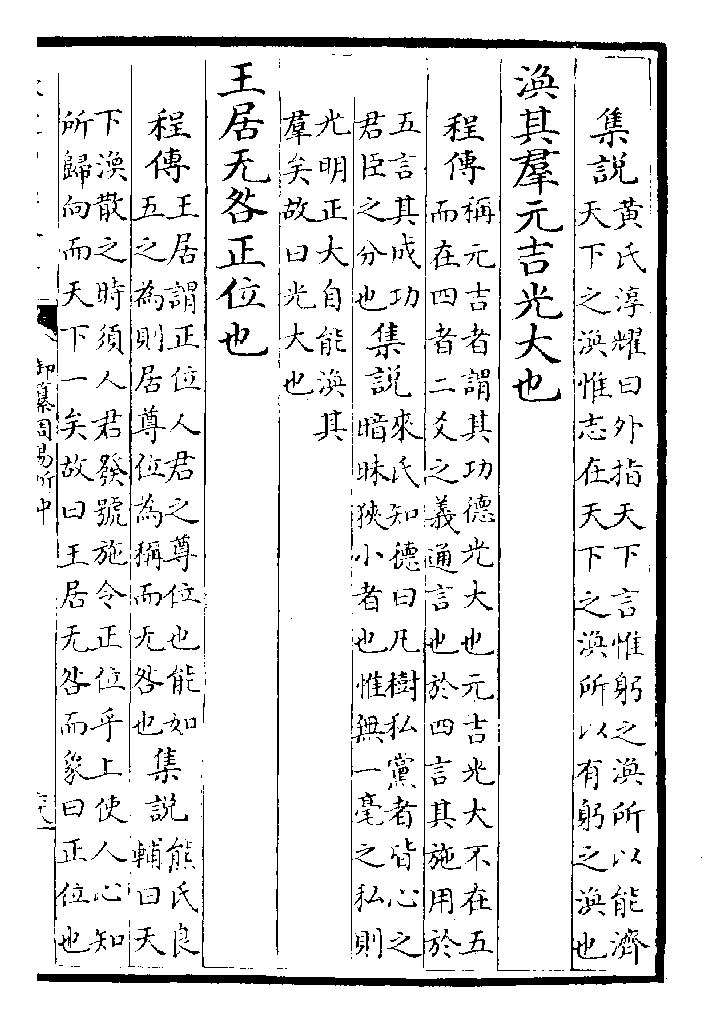 集説黃氏淳耀曰外指天下言惟躬之渙所以能濟
天下之渙惟志在天下之渙所以有躬之渙也
渙其羣元吉光大也
程傳稱元吉者謂其功德光大也元吉光大不在五
而在四者二爻之義通言也於四言其施用於
五言其成功
君臣之分也集説來氏知德曰凡樹私黨者皆心之
暗昧狹小者也惟無一毫之私則
光明正大自能渙其
羣矣故曰光大也
王居无咎正位也
程傳王居謂正位人君之尊位也能如
五之為則居尊位為稱而无咎也集説熊氏良
輔曰天
下渙散之時須人君發號施令正位乎上使人心知
所歸向而天下一矣故曰王居无咎而象曰正位也
御纂周易折中